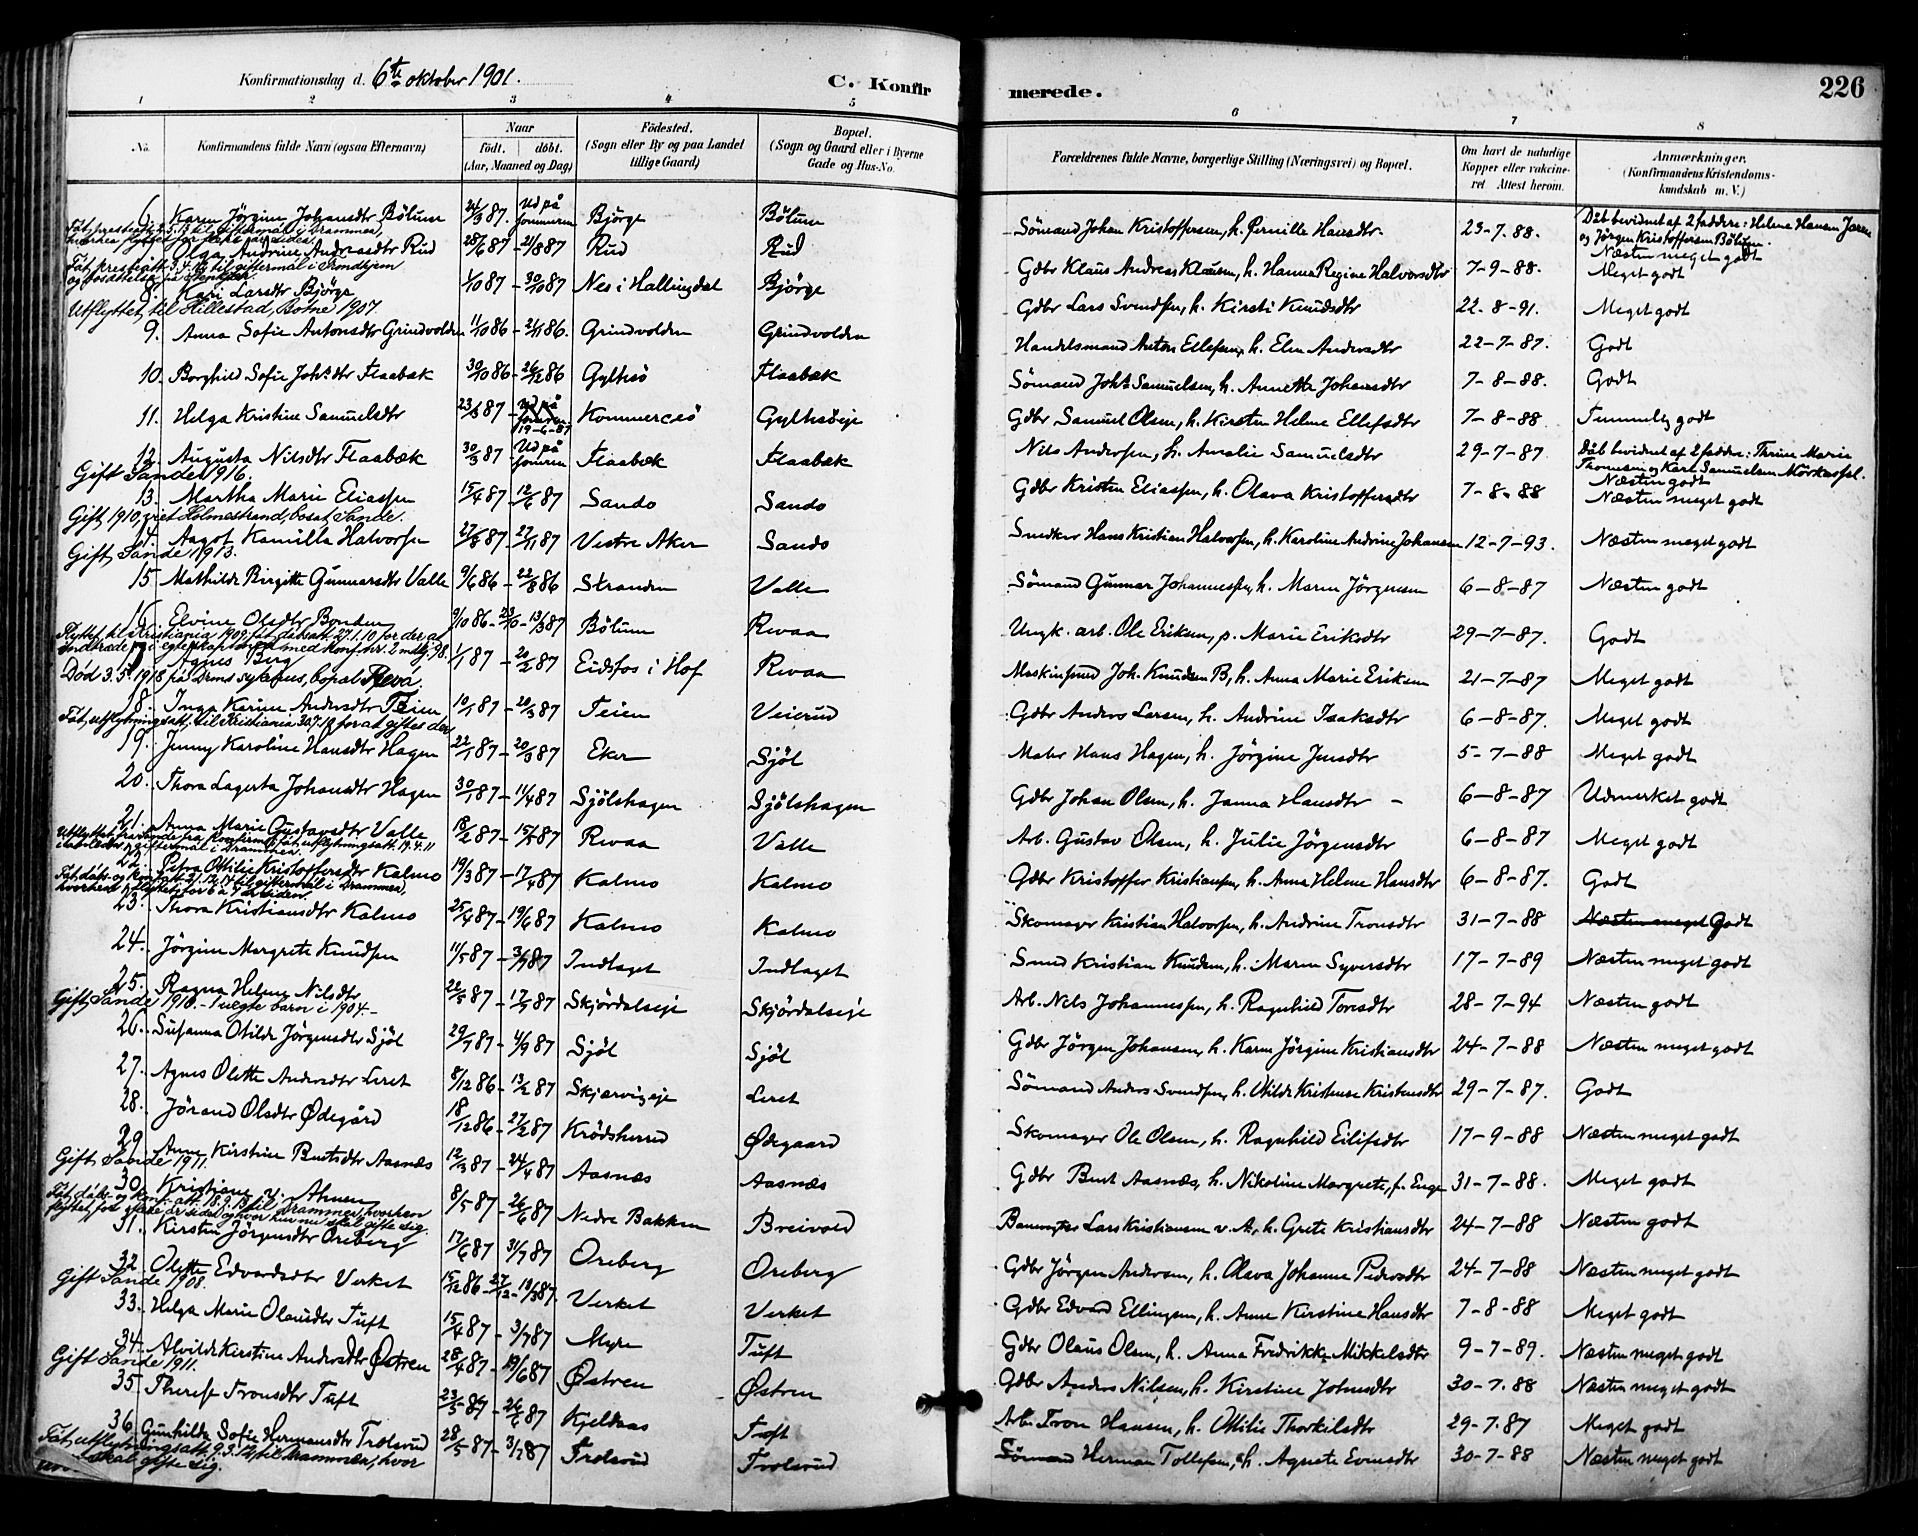 Konfirmationsdag d. 6te oktober 1901.
C. Konfir
merede.
226
1 2 3 4 5 6 7 8
No. Konfirmandens fulde Navn (ogsaa Efternavn)
Naar
født. døbt.
(Aar, Maaned og Dag)
Fødested.
(Sogn eller By og paa Landet
tillige Gaard)
Bopæl.
(Sogn og Gaard eller i Byerne
Gade og Hus-No.
Forældrenes fulde Navne, borgerlige Stilling (Næringsvei) og Bopæl.
Om havt de naturlige
Kopper eller vakcine-
ret Attest herom.
Anmærkninger.
(Konfirmandens Kristendoms-
kundskab m. V.)
6. Karen Jörgine Johansdtr Bölum 24/3 87. Ud på Bjørge Bölum Sömand Johan Kristoffersen, h. Pernille Hansdtr. 23-7-88. Dåb bevidnet af 2 faddere: Helene Hansen
og Jörgen Kristoffersen Bölum.
Næsten meget godt
Olga Andrine Andreasdtr Rud 28/6 87 - 21/8 87 Rud Rud Gdbr Klaus Andreas Klausen, h. Hanna Regine Halvorsdtr 7-9-88. Meget godt
8. Kari Larsdtr Bjørge 1/10 87 - 30/10 87 Nes i Hallingdal Bjørge Gdbr Lars Svendsen, h. Kirsti Knudsdtr 22-8-91. Meget godt
Utflyttet til Hillestad, Botne 1907.
9. Anna Sofie Antonsdtr Grindvolden 11/10 86 - 21/11 86. Grindvolden Grindvolden Handelsmand Anton Ellefsen, h. Elen Andersdtr 22-7-87. Godt
10. Borghild Sofie Johsdtr Flaabæk 30/10 86 - 26/12 86 Gylhsö Flaabæk Sömand Johs Samuelsen, h. Annette Johansdtr 7-8-88. Godt
11. Helga Kristine Samuelsdtr 23/3 87 19-6-87 Kommercesö Gylhsöeje Gdbr Samuel Olsen, h. Kirsten Helene Ellefsdtr 7-8-88 Temmelig godt
12. Augusta Nilsdtr Flaabæk 30/3 87 - Ud på Flaabæk Flaabæk Nils Andersen, h. Amalie Samuelsdtr 29-7-87 Dåb bevidnet af 2 faddere: Thrine Marie
Thomesen og Karl Samuelsen
Næsten godt
Gift Sande 1916.
13. Martha Marie Eliassen 15/4 87 - 12/6 87 Sando Sando Gdbr Kristen Eliassen, h. Olava Kristoffersdtr 7-8-88 Næsten meget godt
Gift 1910, viet Holmestrand, bosat Sande.
14. Aagot Kamilla Halvorsen 27/8 87 - 27/11 87 Vestre Aker Sando Smedker Hans Kristian Halvorsen, h. Karoline Andrine Johansen 12-7-93. Næsten meget godt
Gift Sande 1913.
15. Mathilde Birgitte Gunnarsdtr Valle 9/6 86 - 22/8 86 Stranden Valle Sömand Gunnar Johannessen, h. Maren Jörgensen 6-8-87 Næsten godt
16. Elvine Olsdtr Bonden 9/10 86 - 23/10 - 13/3 87 Bölum Revaa Ungk. arb. Ole Eriksen, p. Marie Eriksdtr 29-7-87. Godt
Flyttet til Kristiania 1909, fåt dåbsatt. 27.1.10 for der at
indtræde i egteskap med konf. nr. 2 mdlg. 98.
17. Agnes Berg 1/1 87 - 20/2 87 Eidsfos i Hof Revaa Maskinsmed Joh. Knudsen B, h. Anna Marie Eriksen 21-7-87 Meget godt
Död 3.5.1918 på Drms sykehus, bopæl Reva.
18. Inga Karine Andersdtr Teien 10/1 87 - 20/3 87 Teien Veierud Gdbr Anders Larsen, h. Andrine Isaksdtr 6-8-87. Meget godt
Fåt utflytningsatt. til Kristiania 30.7.12 for at giftes der.
19. Jenny Karoline Hansdtr Hagen 22/1 87 - 20/3 87 Eker Sjöl Maler Hans Hagen, h. Jörgine Jensdtr 5-7-88 Meget godt
20. Thora Lagerta Johansdtr Hagen 30/1 87 - 11/4 87 Sjölshagen Sjölshagen Gdbr Johan Olsen, h. Janna Hansdtr - 6-8-87 Udmerket godt
21. Anna Marie Gustavsdtr Valle 18/2 87 Revaa Valle Arb. Gustav Olsen, h. Julie Jörgensdtr 6-8-87 Meget godt
22. Petra Otilie Kristoffersdtr Kalmo 19/3 87 - 17/4 87 Kalmo Kalmo Gdbr Kristoffer Kristiansen, h. Anna Helene Hansdtr 6-8-87. Godt
23. Thora Kristiansdtr Kalmo 25/4 87 - 19/6 87 Kalmo Kalmo Skomager Kristian Halvorsen, h. Andrine Tronsdtr 31-7-88 Næsten meget Godt
24. Jörgine Margrete Knudsen 11/5 87 - 3/7 87 Indlaget Indlaget Smed Kristian Knudsen, h. Maren Syversdtr 17-7-89 Næsten meget godt
25. Ragna Helene Nilsdtr Skjördalseje Skjördalseje Arb. Nels Johannessen, h. Ragnhild Toresdtr 28-7-94 Næsten godt
Gift Sande 1910. - 1 uægte barn i 1904. -
26. Susanna Otilde Jörgensdtr Sjöl 29/7 87 - 4/9 87 Sjöl Sjöl Gdbr Jörgen Johansen, h. Karen Jörgine Kristiansdtr 24-7-88 Næsten meget godt
27. Agnes Olette Andersdtr Leret 8/12 86 - 13/2 87 Skjærvigeje Leret Sömand Anders Svendsen, h. Otilde Kristense Kristensdtr 29-7-87. Godt
28. Jörand Olsdtr Ødegård 18/12 86 - 27/2 87 Krödsherred Ødegaard Skomager Ole Olsen, h. Ragnhild Eilifsdtr 17-9-88 Næsten meget godt
29. Anne Kirstine Berntsdtr Aasnæs 12/3 87 - 24/4 87 Aasnæs Aasnæs Gdbr Bernt Aasnæs, h. Nikoline Margrete, f. Enge 31-7-88. Meget godt
Gift Sande 1911.
30. Kristiane v. Ahnen 8/5 87 - 26/6 87 Nedre Bakken Breivold Lars Kristiansen v. A, h. Grete Kristiansdtr 24-7-88 Næsten godt
31. Kirsten Jörgensdtr Oreberg 17/6 87 31/7 87 Oreberg Oreberg Gdbr Jörgen Andersen, h. Olava Johanne Pedersdtr 24-7-88 Næsten meget godt
32. Olette Edvardsdtr Verket 15/12 86 - 27/12 - 13/3 87. Verket Verket Gdbr Edvard Ellingsen, h. Anne Kirstine Hansdtr 7-8-88 Meget godt
Gift Sande 1908.
33. Helga Marie Olausdtr Tuft 15/4 87 - 3/7 87 Myre Tuft Gdbr Olaus Olsen, h. Anna Fredrikke Mikkelsdtr 9-7-89. Næsten meget godt
34. Alvilde Kirstine Andersdtr Østren 28/4 87 - 19/6 87 Østren Østren Gdbr Anders Nilsen, h. Kirstine Johnsdtr 30-7-88 Næsten meget godt
Gift Sande 1911.
35. Therese Tronsdtr Tuft 23/5 87 - 26/6 87 Kjeldaas Tuft Arb. Tron Hansen, h. Otilie Thorkilsdtr 29-7-87 Meget godt
36. Gunhilde Sofie Hermansdtr Trolsrud 28/5 87 - 3/7 87 Trolsrud Trolsrud Sömand Herman Tollefsen, h. Agnete Evensdtr 30-7-88 Næsten meget godt
Fåt utflytningsatt. 9.3.12, til Drammen, hvor
skal gifte sig.